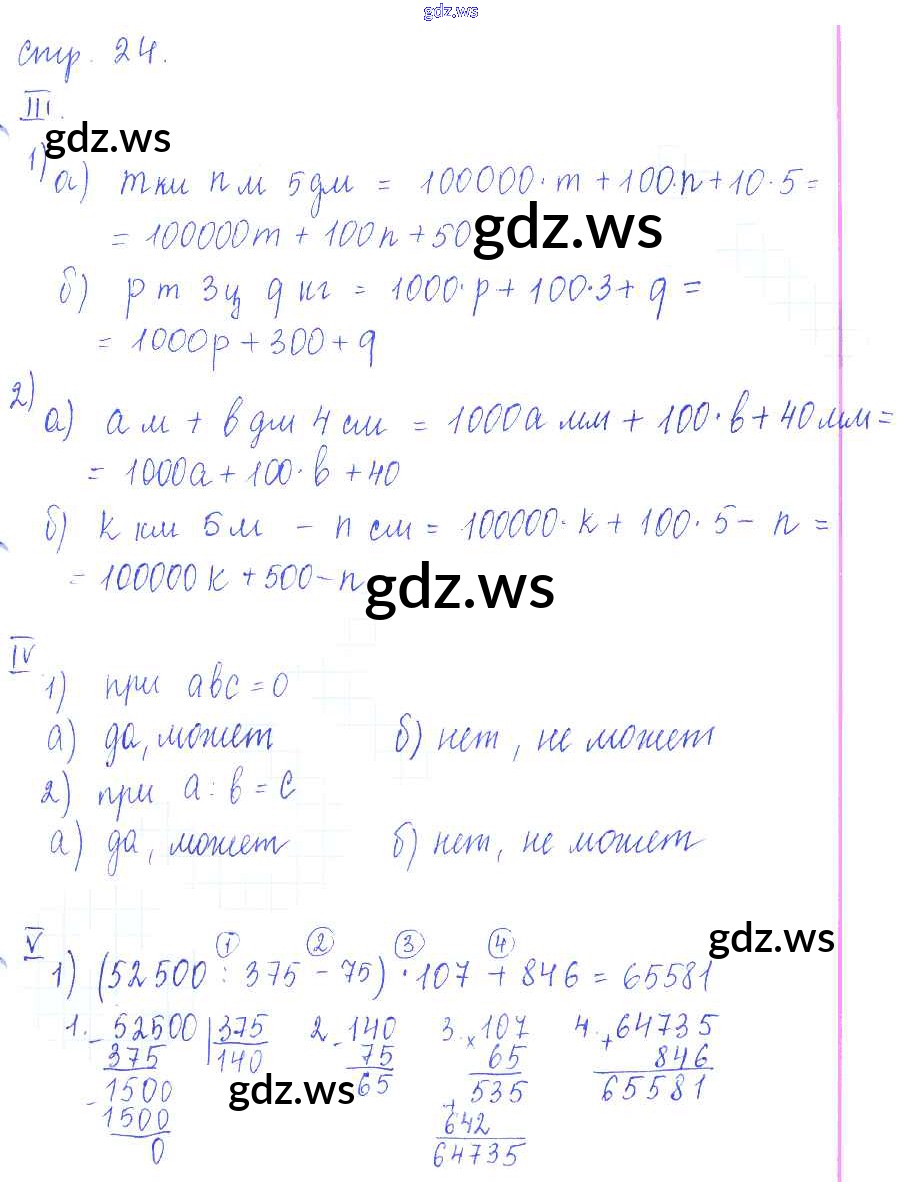 gdz.ws
стр. 24.
III.
gdz.ws
1) а) m км n м 5 дм = 100000·m + 100·n + 10·5 =
= 100000m + 100n + 50 gdz.ws
б) p т 3 ц q кг = 1000·p + 100·3 + q =
= 1000p + 300 + q
2) а) a м + b дм 4 см = 1000a мм + 100·b + 40 мм =
= 1000a + 100·b + 40
б) k км 5 м - n см = 100000·k + 100·5 - n =
= 100000k + 500 - n gdz.ws
IV 1) при abc = 0
а) да, может б) нет, не может
2) при a : b = c
а) да, может б) нет, не может
gdz.ws
V ① ② ③ ④
1) (52500 : 375 - 75) · 107 + 846 = 65581
1. - 52500 | 375 2. - 140 3. × 107 4. + 64735
375 140 75 65 846
- 1500 gdz.ws 65 + 535 65581
1500 642
0 64735